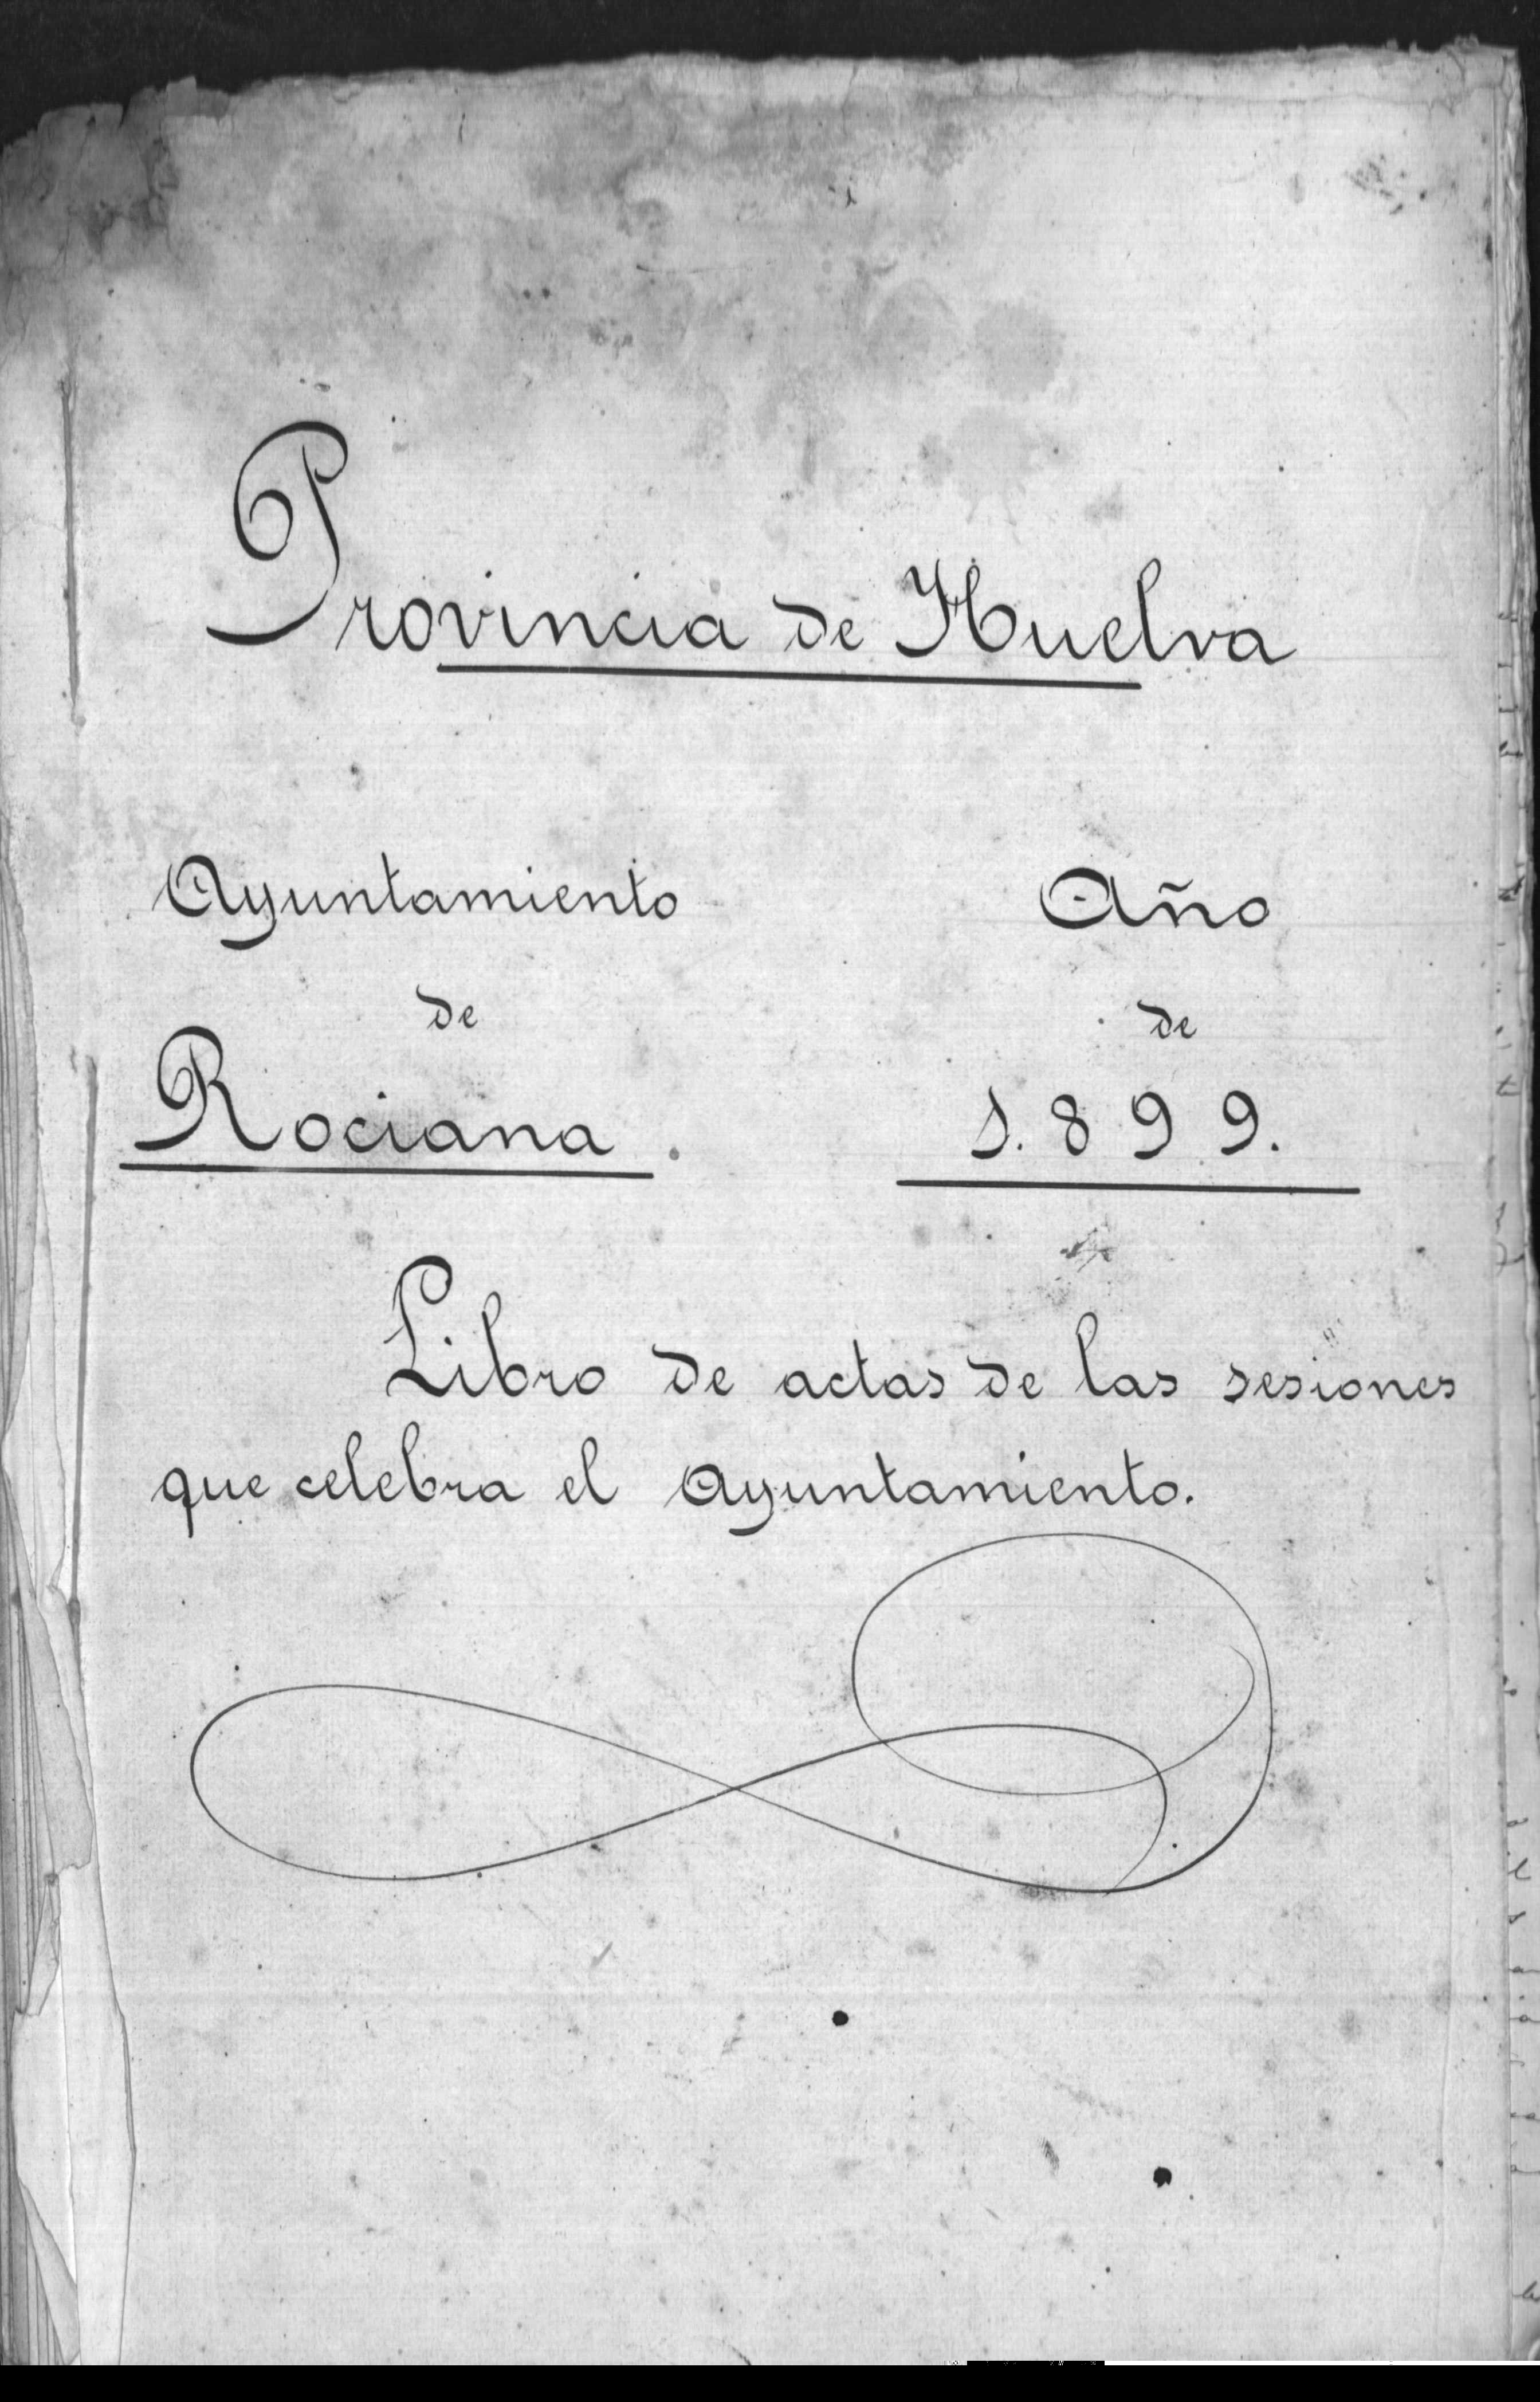 Provincia de Huelva
Ayuntamiento
de
Rociana.
Año
de
1.899.
Libro de actas de las sesiones
que celebra el Ayuntamiento.